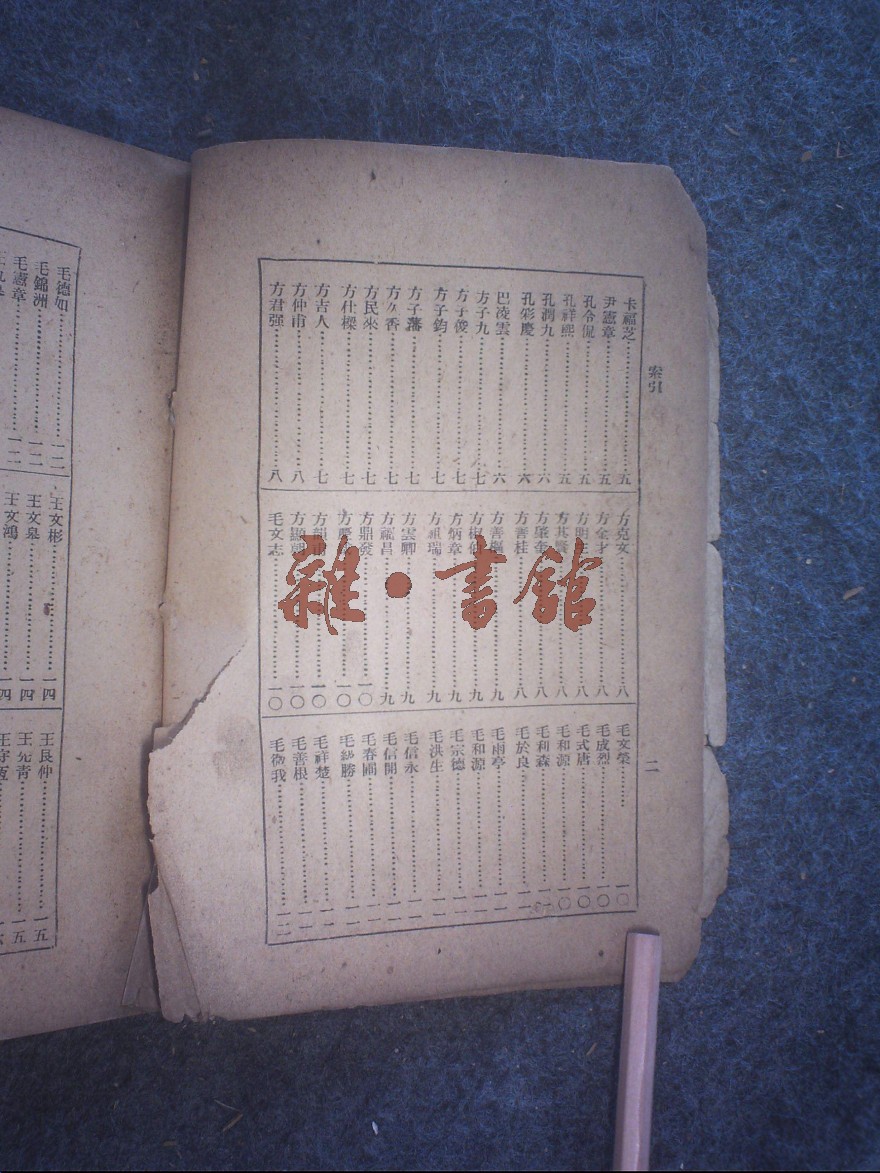 索引
二
卡福芝 五
尹憲章 五
孔令侃 五
孔祥熙 五
孔潤九 六
孔彩慶 六
巴凌雲 六
方子九 七
方子俊 七
方子鈞 七
方子藩 七
方久香 七
方民來 七
方仕樑 七
方吉人 七
方仲甫 八
方君强 八
方克文 八
方金才 八
方明 八
方其 八
方 八
方善桂 八
方善 九
方椒伯 九
方炳章 九
方祖瑞 九
方雲卿 九
方福昌 九
方鼎發 一〇
方慶 一〇
方 一〇
方顯 一〇
毛文志 一〇
毛文榮 一〇
毛成烈 一〇
毛式唐 一〇
毛和源 一〇
毛利森 一一
毛於良 一一
毛雨亭 一一
毛和源 一一
毛宗德 一一
毛洪生 一一
毛信永 一一
毛信開 一一
毛春圃 一一
毛 勝 一一
毛祥楚 一一
毛善根 一二
毛微我 一二
毛德如 一二
毛錦洲 一二
毛憲章 一二
王文彬 一四
王文皋 一四
王文鴻 一四
王良仲 一五
王完青 一五
王守恆
雜·書館